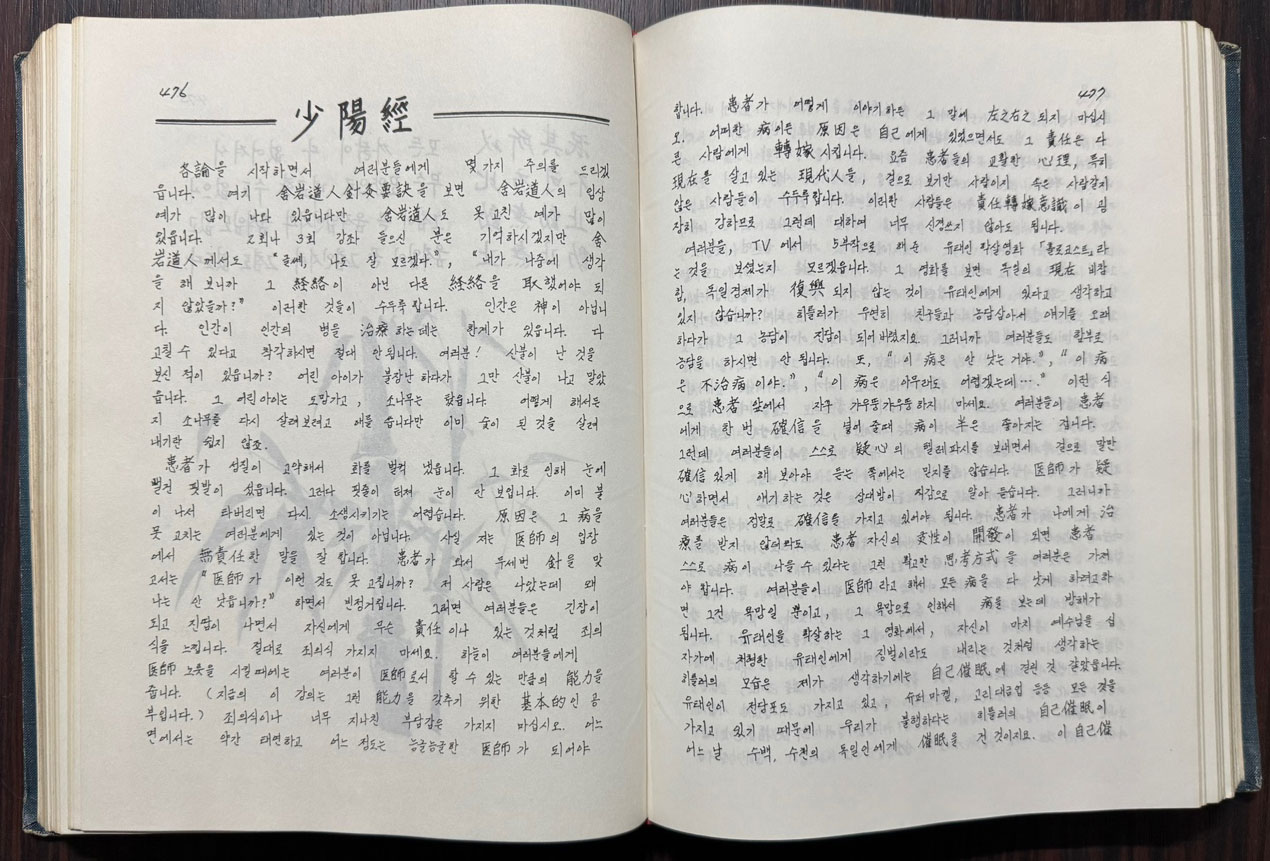 476
少陽經
各論을 시작하면서 여러분들에게 몇가지 주의를 드리겠
읍니다. 여기 舍岩道人針灸要訣을 보면 舍岩道人의 임상
예가 많이 나와 있읍니다만 舍岩道人도 못 고친 예가 많이
있읍니다. 2회나 3회 강좌 들으신 분은 기억하시겠지만 舍
岩道人께서도 “글쎄, 나도 잘 모르겠다.”, “내가 나중에 생각
을 해 보니까 그 経絡이 아닌 다른 経絡을 取했어야 되
지 않았을까?” 이러한 것들이 수두룩합니다. 인간은 神이 아닙니
다. 인간이 인간의 병을 治療하는데는 한계가 있읍니다. 다
고칠 수 있다고 착각하시면 절대 안됩니다. 여러분! 산불이 난 것을
보신 적이 있읍니까? 어린 아이가 불장난 하다가 그만 산불이 나고 말았
읍니다. 그 어린아이는 도망가고, 소나무는 탔읍니다 어떻게 해서든
지 소나무를 다시 살려보려고 애를 씁니다만 이미 숯이 된 것을 살려
내기란 쉽지 않죠.
患者가 성질이 고약해서 화를 벌컥 냈읍니다. 그 화로 인해 눈에
뻘건 핏발이 섰읍니다. 그러다 핏줄이 터져 눈이 안 보입니다. 이미 불
이 나서 타버리면 다시 소생시키기는 어렵습니다. 原因은 그 病을
못 고치는 여러분에게 있는 것이 아닙니다. 사실 저는 医師의 입장
에서 無責任한 말을 잘 합니다. 患者가 와서 두세번 針을 맞
고서는 “医師가 이런 것도 못 고칩니까? 저 사람은 나았는데 왜
나는 안 낫읍니까?” 하면서 빈정거립니다. 그러면 여러분들은 긴장이
되고 진땀이 나면서 자신에게 무슨 責任이나 있는 것처럼 죄의
식을 느낍니다. 절대로 죄의식 가지지 마세요. 하늘이 여러분들에게
医師 노릇을 시킬때에는 여러분이 医師로서 할 수 있는 만큼의 能力을
줍니다. (지금의 이 강의는 그런 能力을 갖추기 위한 基本的인 공
부입니다.) 죄의식이나 너무 지나친 부담감은 가지지 마십시오. 어느
면에서는 약간 태연하고 어느 정도는 능글능글한 医師가 되어야
477
합니다. 患者가 어떻게 이야기하든 그 말에 左之右之 되지 마십시
오. 어떠한 病이든 原因은 自己에게 있었으면서도 그 責任은 다
른 사람에게 轉嫁시킵니다. 요즘 患者들의 교활한 心理, 특히
現在를 살고 있는 現代人들, 겉으로 보기만 사람이지 속은 사람같지
않은 사람들이 수두룩합니다. 이러한 사람들은 責任轉嫁意識이 굉
장히 강하므로 그런데 대하여 너무 신경쓰지 않아도 됩니다.
여러분들, TV에서 5부작으로 해준 유태인 학살영화 「홀로코스트」라
는 것을 보셨는지 모르겠읍니다. 그 영화를 보면 독일의 現在 비참
함, 독일경제가 復興되지 않는 것이 유태인에게 있다고 생각하고
있지 않습니까? 히틀러가 우연히 친구들과 농담삼아서 얘기를 오래
하다가 그 농담이 진담이 되어버렸지요. 그러니까 여러분들도 함부로
농담을 하시면 안 됩니다. 또, “이 病은 안 낫는거야.”, “이 病
은 不治病이야.”, “이 病은 아무래도 어렵겠는데….” 이런 식
으로 患者 앞에서 자꾸 갸우뚱갸우뚱하지 마세요. 여러분들이 患者
에게 한 번 確信을 넣어줄때 病이 半은 좋아지는 겁니다.
그런데 여러분들이 스스로 疑心의 텔레파시를 보내면서 겉으로 말만
確信있게 해 보아야 듣는 쪽에서는 믿지를 않습니다. 医師가 疑
心하면서 얘기하는 것은 상대방이 직감으로 알아 듣습니다. 그러니까
여러분들은 정말로 確信을 가지고 있어야 됩니다. 患者가 나에게 治
療를 받지 않더라도 患者 자신의 灵性이 開發이 되면 患者
스스로 病이 나을 수 있다는 그런 확고한 思考方式을 여러분은 가져
야 합니다. 여러분들이 医師라고 해서 모든 病을 다 낫게 하려고 하
면 그건 욕망일 뿐이고, 그 욕망으로 인해서 病을 보는데 방해가
됩니다. 유태인을 학살하는 그 영화에서, 자신이 마치 예수님을 십
자가에 처형한 유태인에게 징벌이라도 내리는 것처럼 생각하는
히틀러의 모습은 제가 생각하기에는 自己催眠에 걸린 것 같았읍니다.
유태인이 전당포도 가지고 있고, 슈퍼마켙, 고리대금업 등등 모든 것을
가지고 있기 때문에 우리가 불행하다는 히틀러의 自己催眠이
어느날 수백, 수천의 독일인에게 催眠을 건 것이지요. 이 自己催